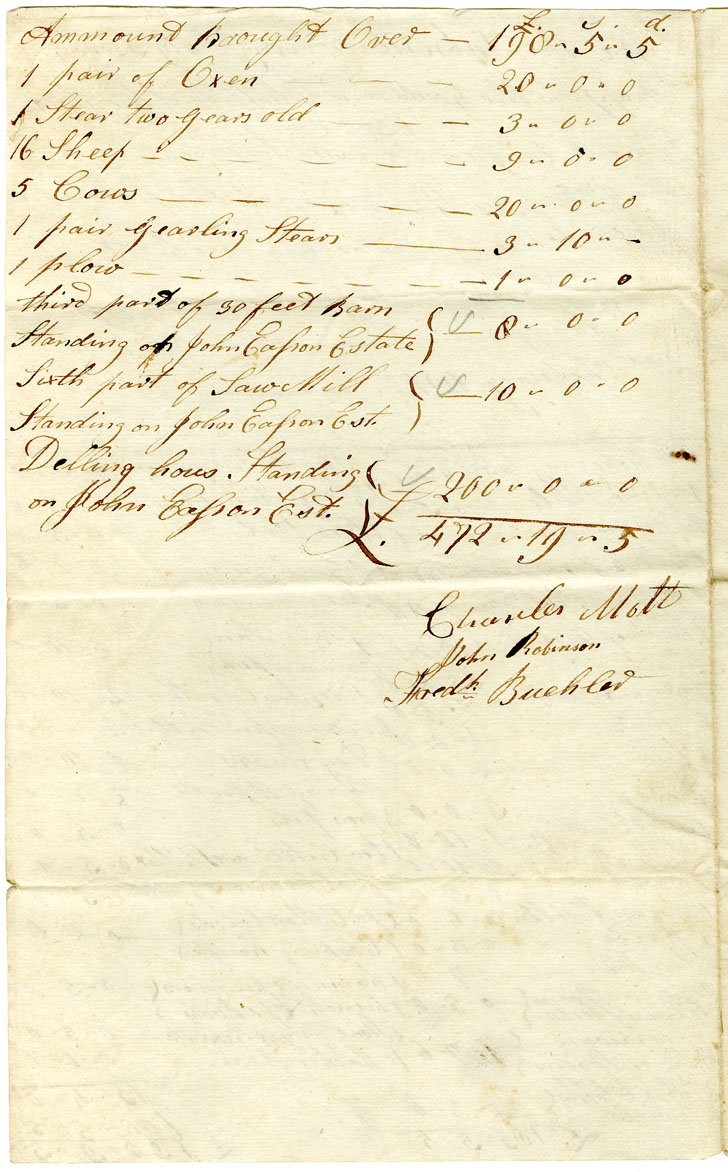 £. s. d.
Ammount Brought Over — 198 " 5 " 5
1 pair of Oxen — — 28 " 0 " 0
1 Stear two years old — — — 3 " 0 " 0
16 Sheep — — — — — — 9 " 0 " 0
5 Cows — — — — — — 20 " 0 " 0
1 pair yearling Stears — 3 " 10 " -
1 plow — — — — — — 1 " 0 " 0
third part of 30 feet Barn
Standing on John Eaſson Estate } — 8 " 0 " 0
Sixth part of Saw Mill
Standing on John Eaſson Est. } — 10 " 0 " 0
Delling hous Standing
on John Eaſson Est. } 200 " 0 " 0
£. 472 " 19 " 5
Charles Mott
John Robinson
Fredk. Buehler